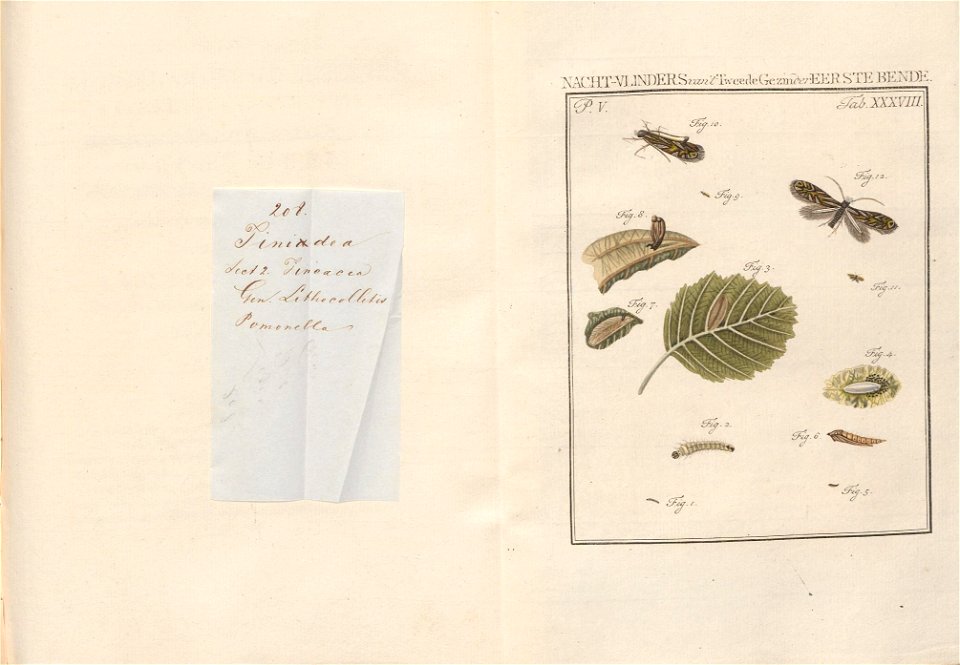 201.
Tiniadea
Sect 2. Tineacea
Gen. Lithocolletes
Pomonella
NACHT-VLINDERS van't Tweede Gezin der EERSTE BENDE.
P. V.
Tab. XXXVIII.
Fig. 10.
Fig. 9.
Fig. 12.
Fig. 8.
Fig. 3.
Fig. 11.
Fig. 7.
Fig. 4.
Fig. 2.
Fig. 6.
Fig. 5.
Fig. 1.